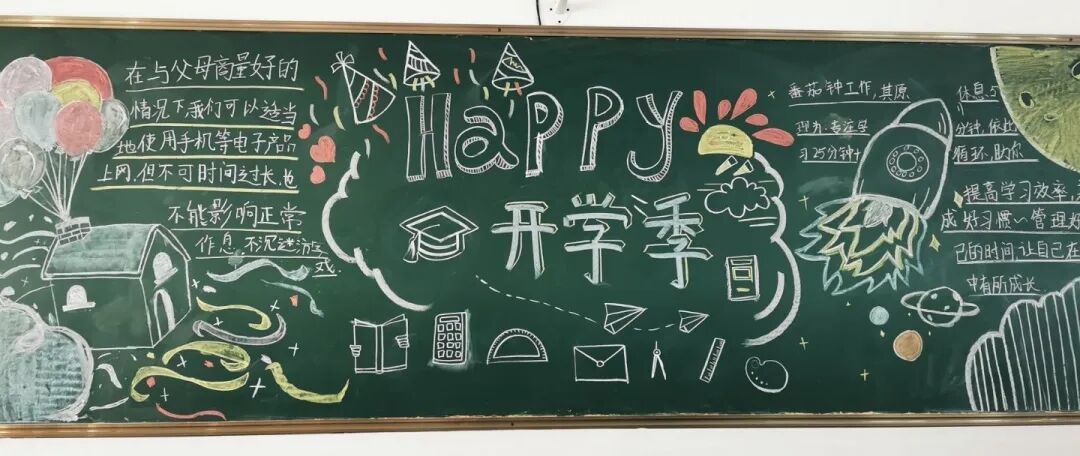 在与父母商量好的
情况下我们可以适当
地使用手机等电子产品
上网,但不可时间过长,也
不能影响正常
作息,不沉迷游
戏.
HAPPY
开学季
番茄钟工作,其原
理为:专注学
习25分钟+
休息5
分钟,依此
循环,助你
提高学习效率,
成好习惯~管理好
己的时间,让自己在
中有所成长.